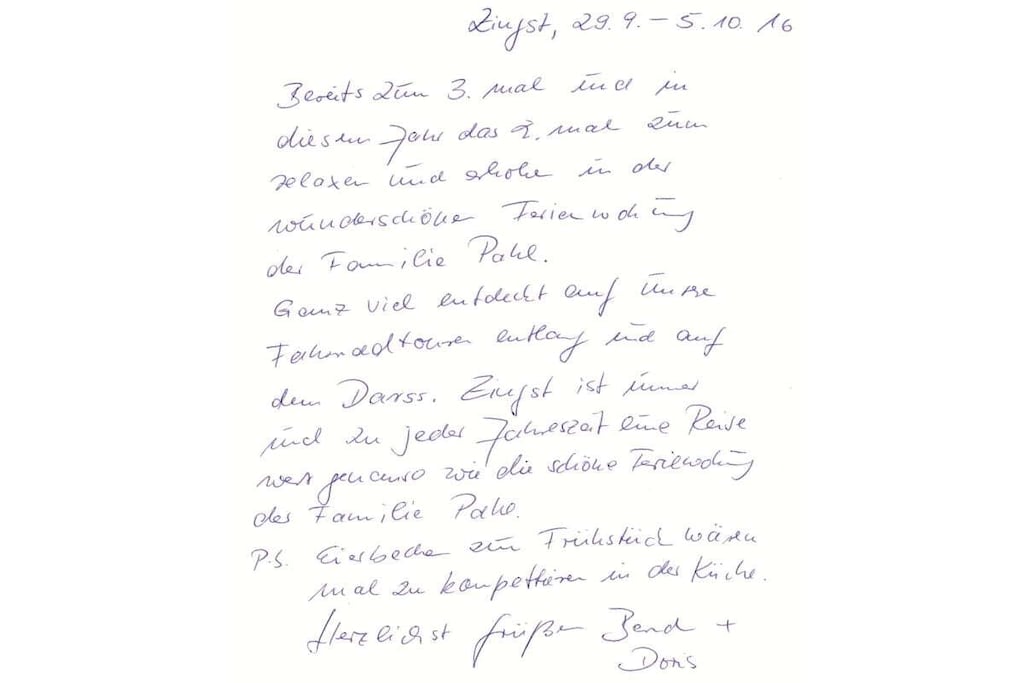 Zingst, 29.9. – 5.10. 16
Bereits zum 3. mal und in
diesem Jahr das 2. mal zum
relaxen und erholen in der
wunderschönen Ferienwohnung
der Familie Pahl.
Ganz viel entdeckt auf unsere
Fahrradtouren entlang und auf
dem Darss. Zingst ist immer
und zu jeder Jahreszeit eine Reise
wert genauso wie die schöne Ferienwohnung
der Familie Pahl.
P.S. Eierbecher zum Frühstück wären
mal zu komplettieren in der Küche.
Herzlichst grüßen Bernd +
Doris